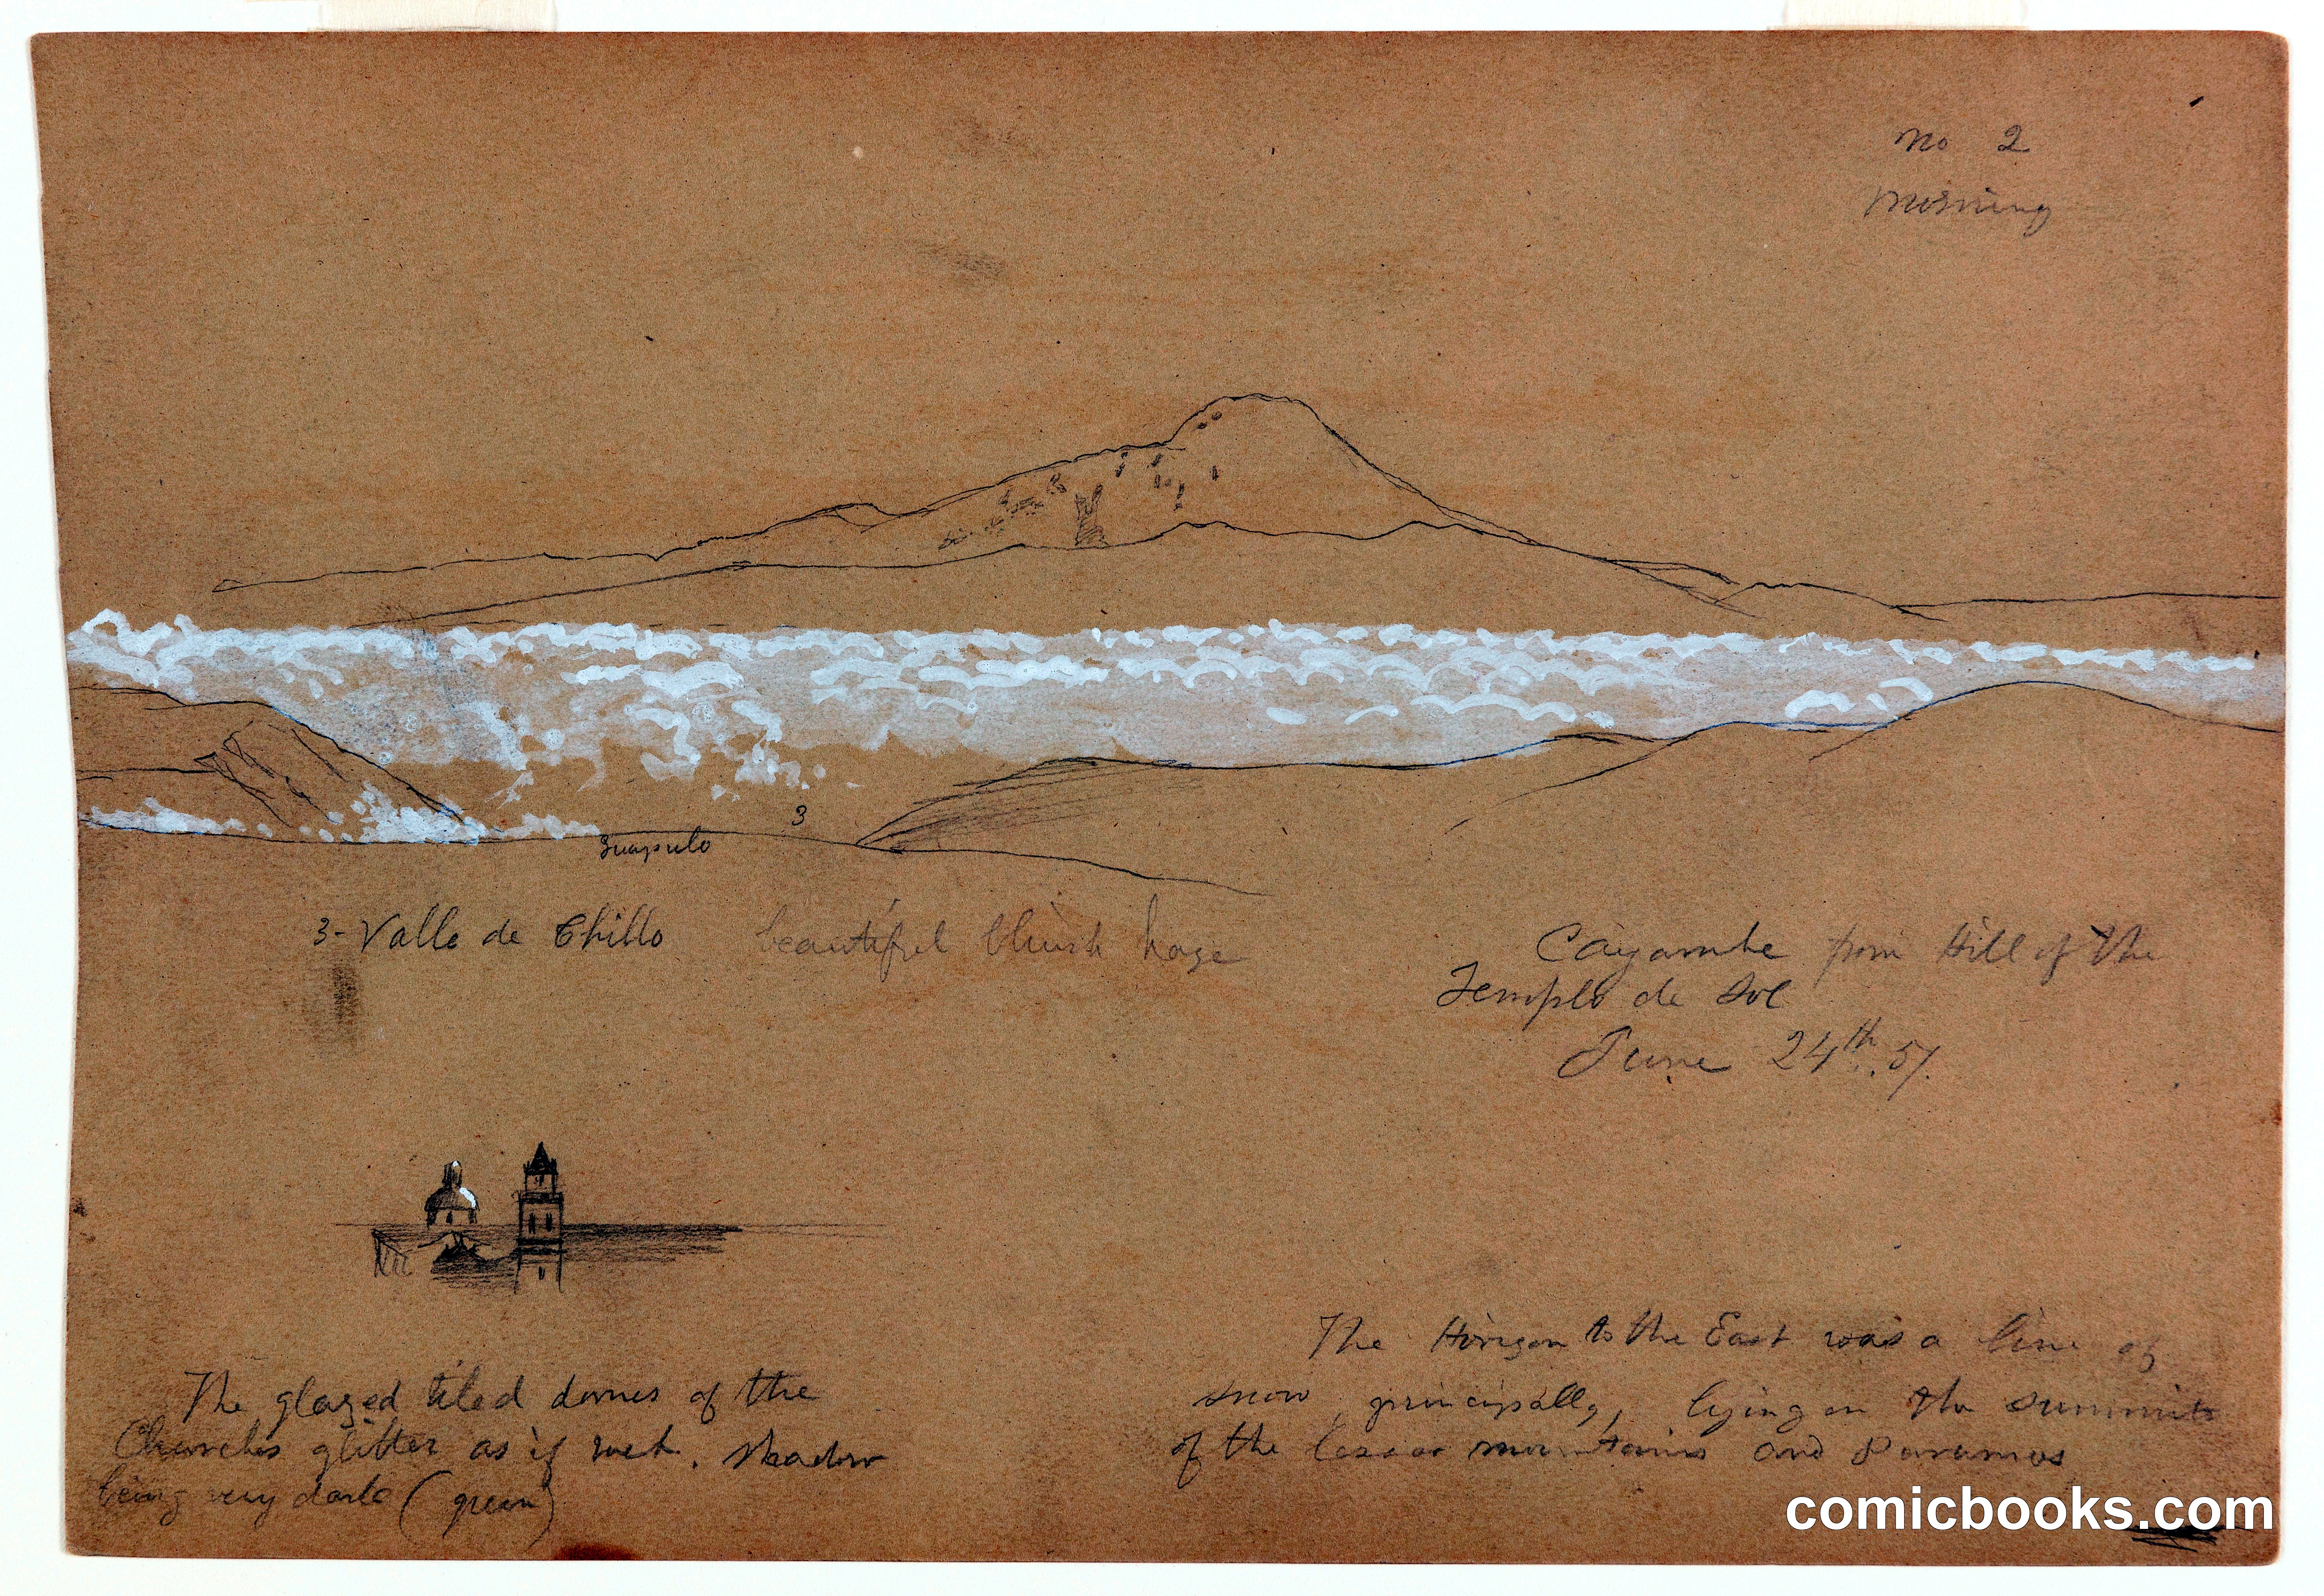 No 2
Morning
3
Guapulo
3- Valle de Chillo beautiful bluish haze
Cayambe from Hill of the
Templo de Sol
June 24th. 57.
The glazed tiled domes of the
Churches glitter as if wet. Shadow
being very dark (green)
The Horizon to the East was a line of
snow principally, lying on the summits
of the lesser mountains and Paramos
comicbooks.com